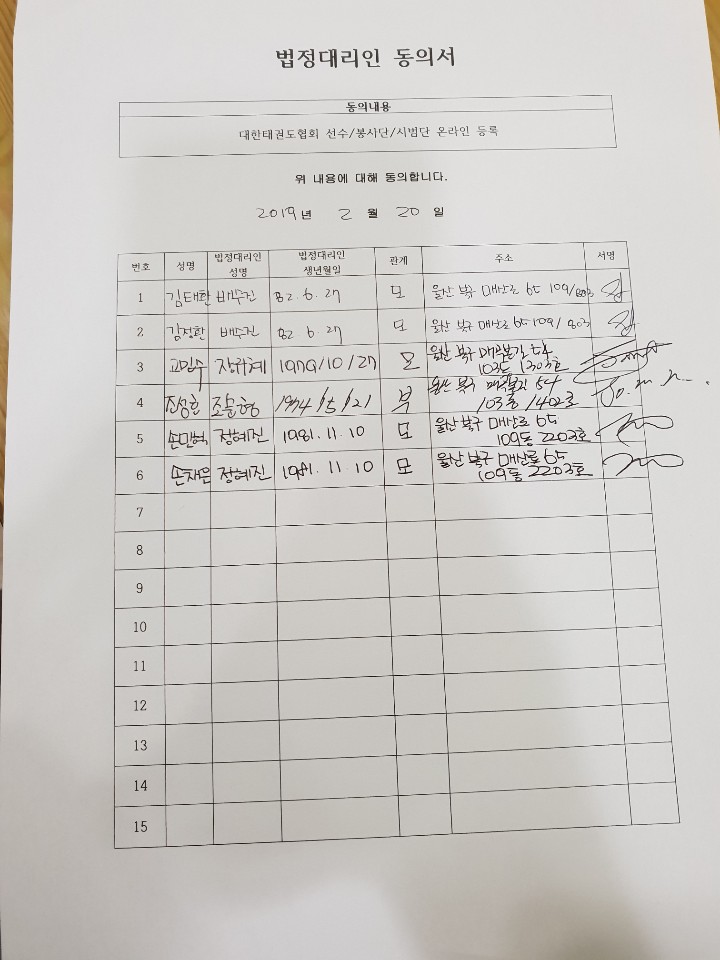 법정대리인 동의서
동의내용
대한태권도협회 선수/봉사단/시범단 온라인 등록
위 내용에 대해 동의합니다.
2019년 2 월 20 일
번호 성명 법정대리인 성명 법정대리인 생년월일 관계 주소 서명
1 김태환 배수진 82.6.27 모 울산 북구 매산로 65 109/803
2 김정한 배수진 82 6.27 모 울산 북구 매산로 65 109/803
3 1979/10/27 모 울산 북구 54
103동 1303호
4 부 울산 북구 54
103동 1402호
5 손민혁 정혜진 1981.11.10 모 울산 북구 매산로 65
109동 2203호
6 손채은 정혜진 1981.11.10 모 울산 북구 매산로 65
109동 2203호
7
8
9
10
11
12
13
14
15